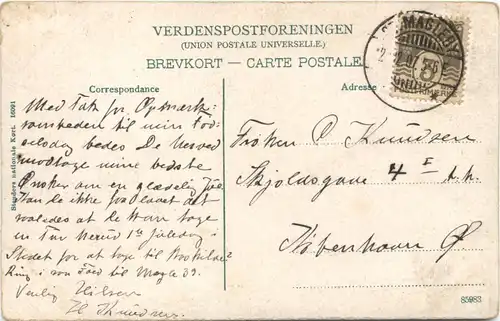 VERDENSPOSTFORENINGEN
(UNION POSTALE UNIVERSELLE)
BREVKORT — CARTE POSTALE
Correspondance
Adresse
Med Tak for Opmærk-
somheden til min Fød-
selsdag bedes De
modtage mine bedste
Ønsker om en glædelig Jul
Kan de ikke faa lavet det
saaledes at de kan tage
en Tur herud 1ste Juledag i
Stedet for at tage til Roskilde?
Ring i saa Fald til Magle 39.
Venlig Hilsen
H Knudsen
Frøken O Knudsen
Skjoldsgade 4 I t.h.
København Ø
Stenders nationale Kort. 16091
85983